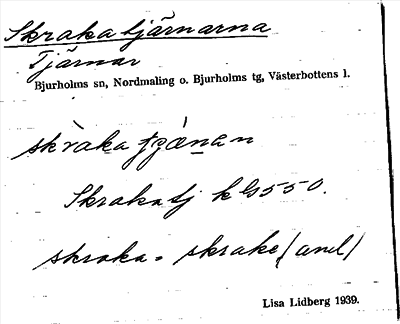 Skrakatjärnarna
Tjärnar
Bjurholms sn, Nordmaling o. Bjurholms tg, Västerbottens l.
skraka
Skrakatj k GS 550.
skraka = skrake (and)
Lisa Lidberg 1939.